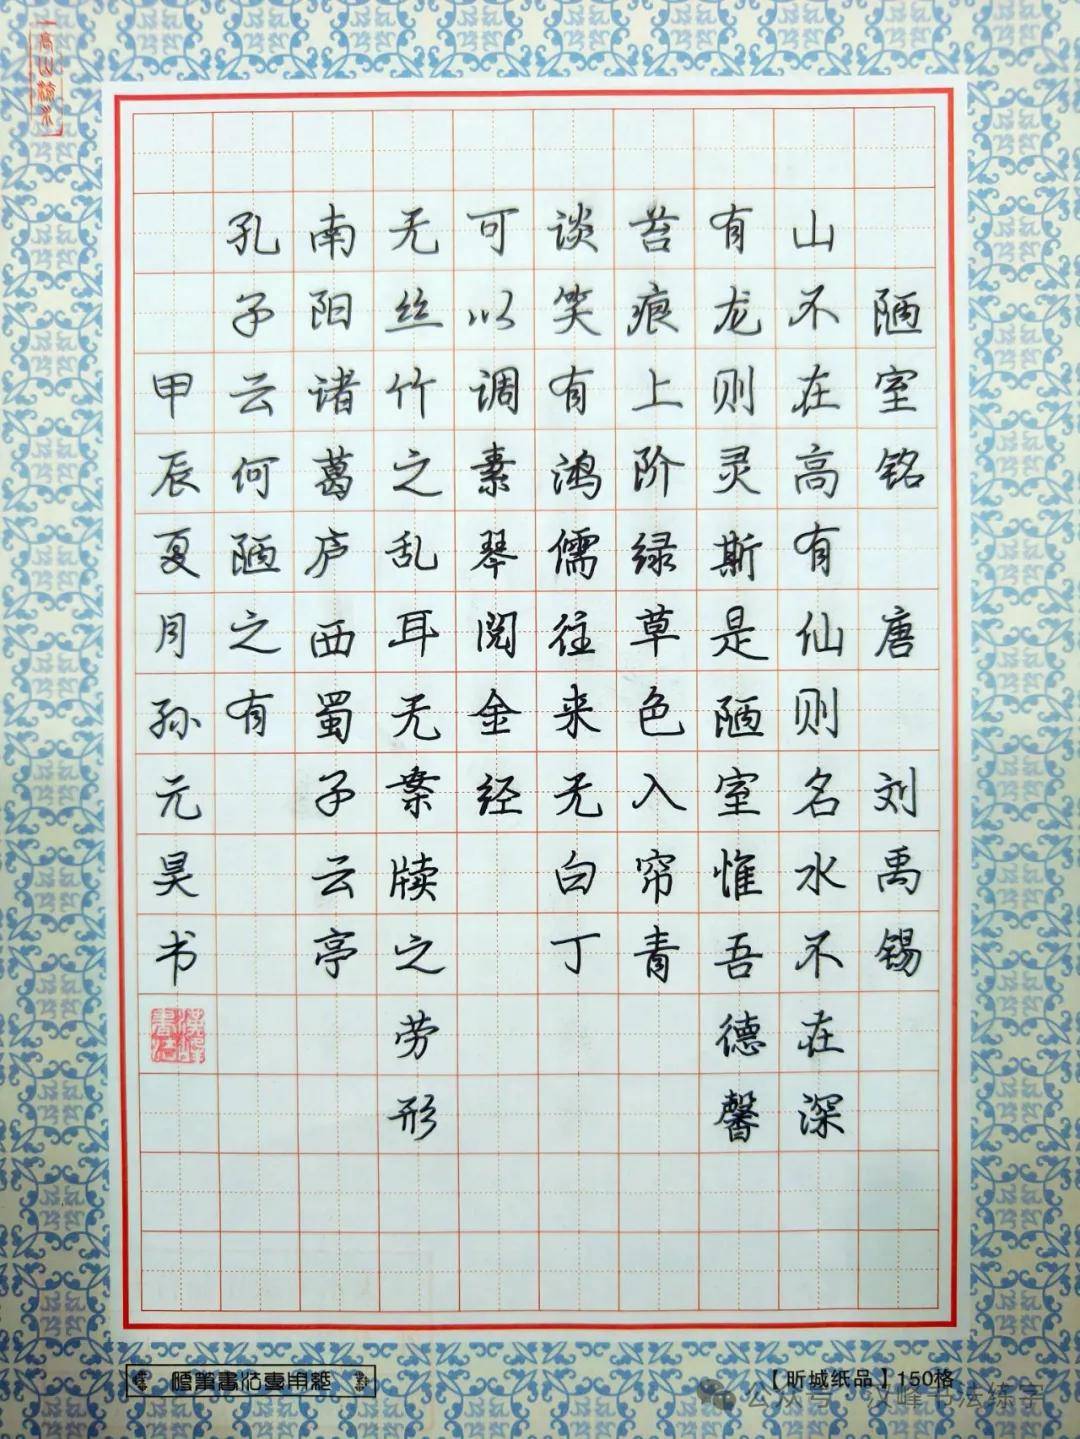 高山流水
陋室铭 唐 刘禹锡
山不在高有仙则名水不在深
有龙则灵斯是陋室惟吾德馨
苔痕上阶绿草色入帘青
谈笑有鸿儒往来无白丁
可以调素琴阅金经
无丝竹之乱耳无案牍之劳形
南阳诸葛庐西蜀子云亭
孔子云何陋之有
甲辰夏月孙元昊书
漢峰書法
硬筆書法專用紙
【昕城纸品】150格
公众号·汉峰书法练字